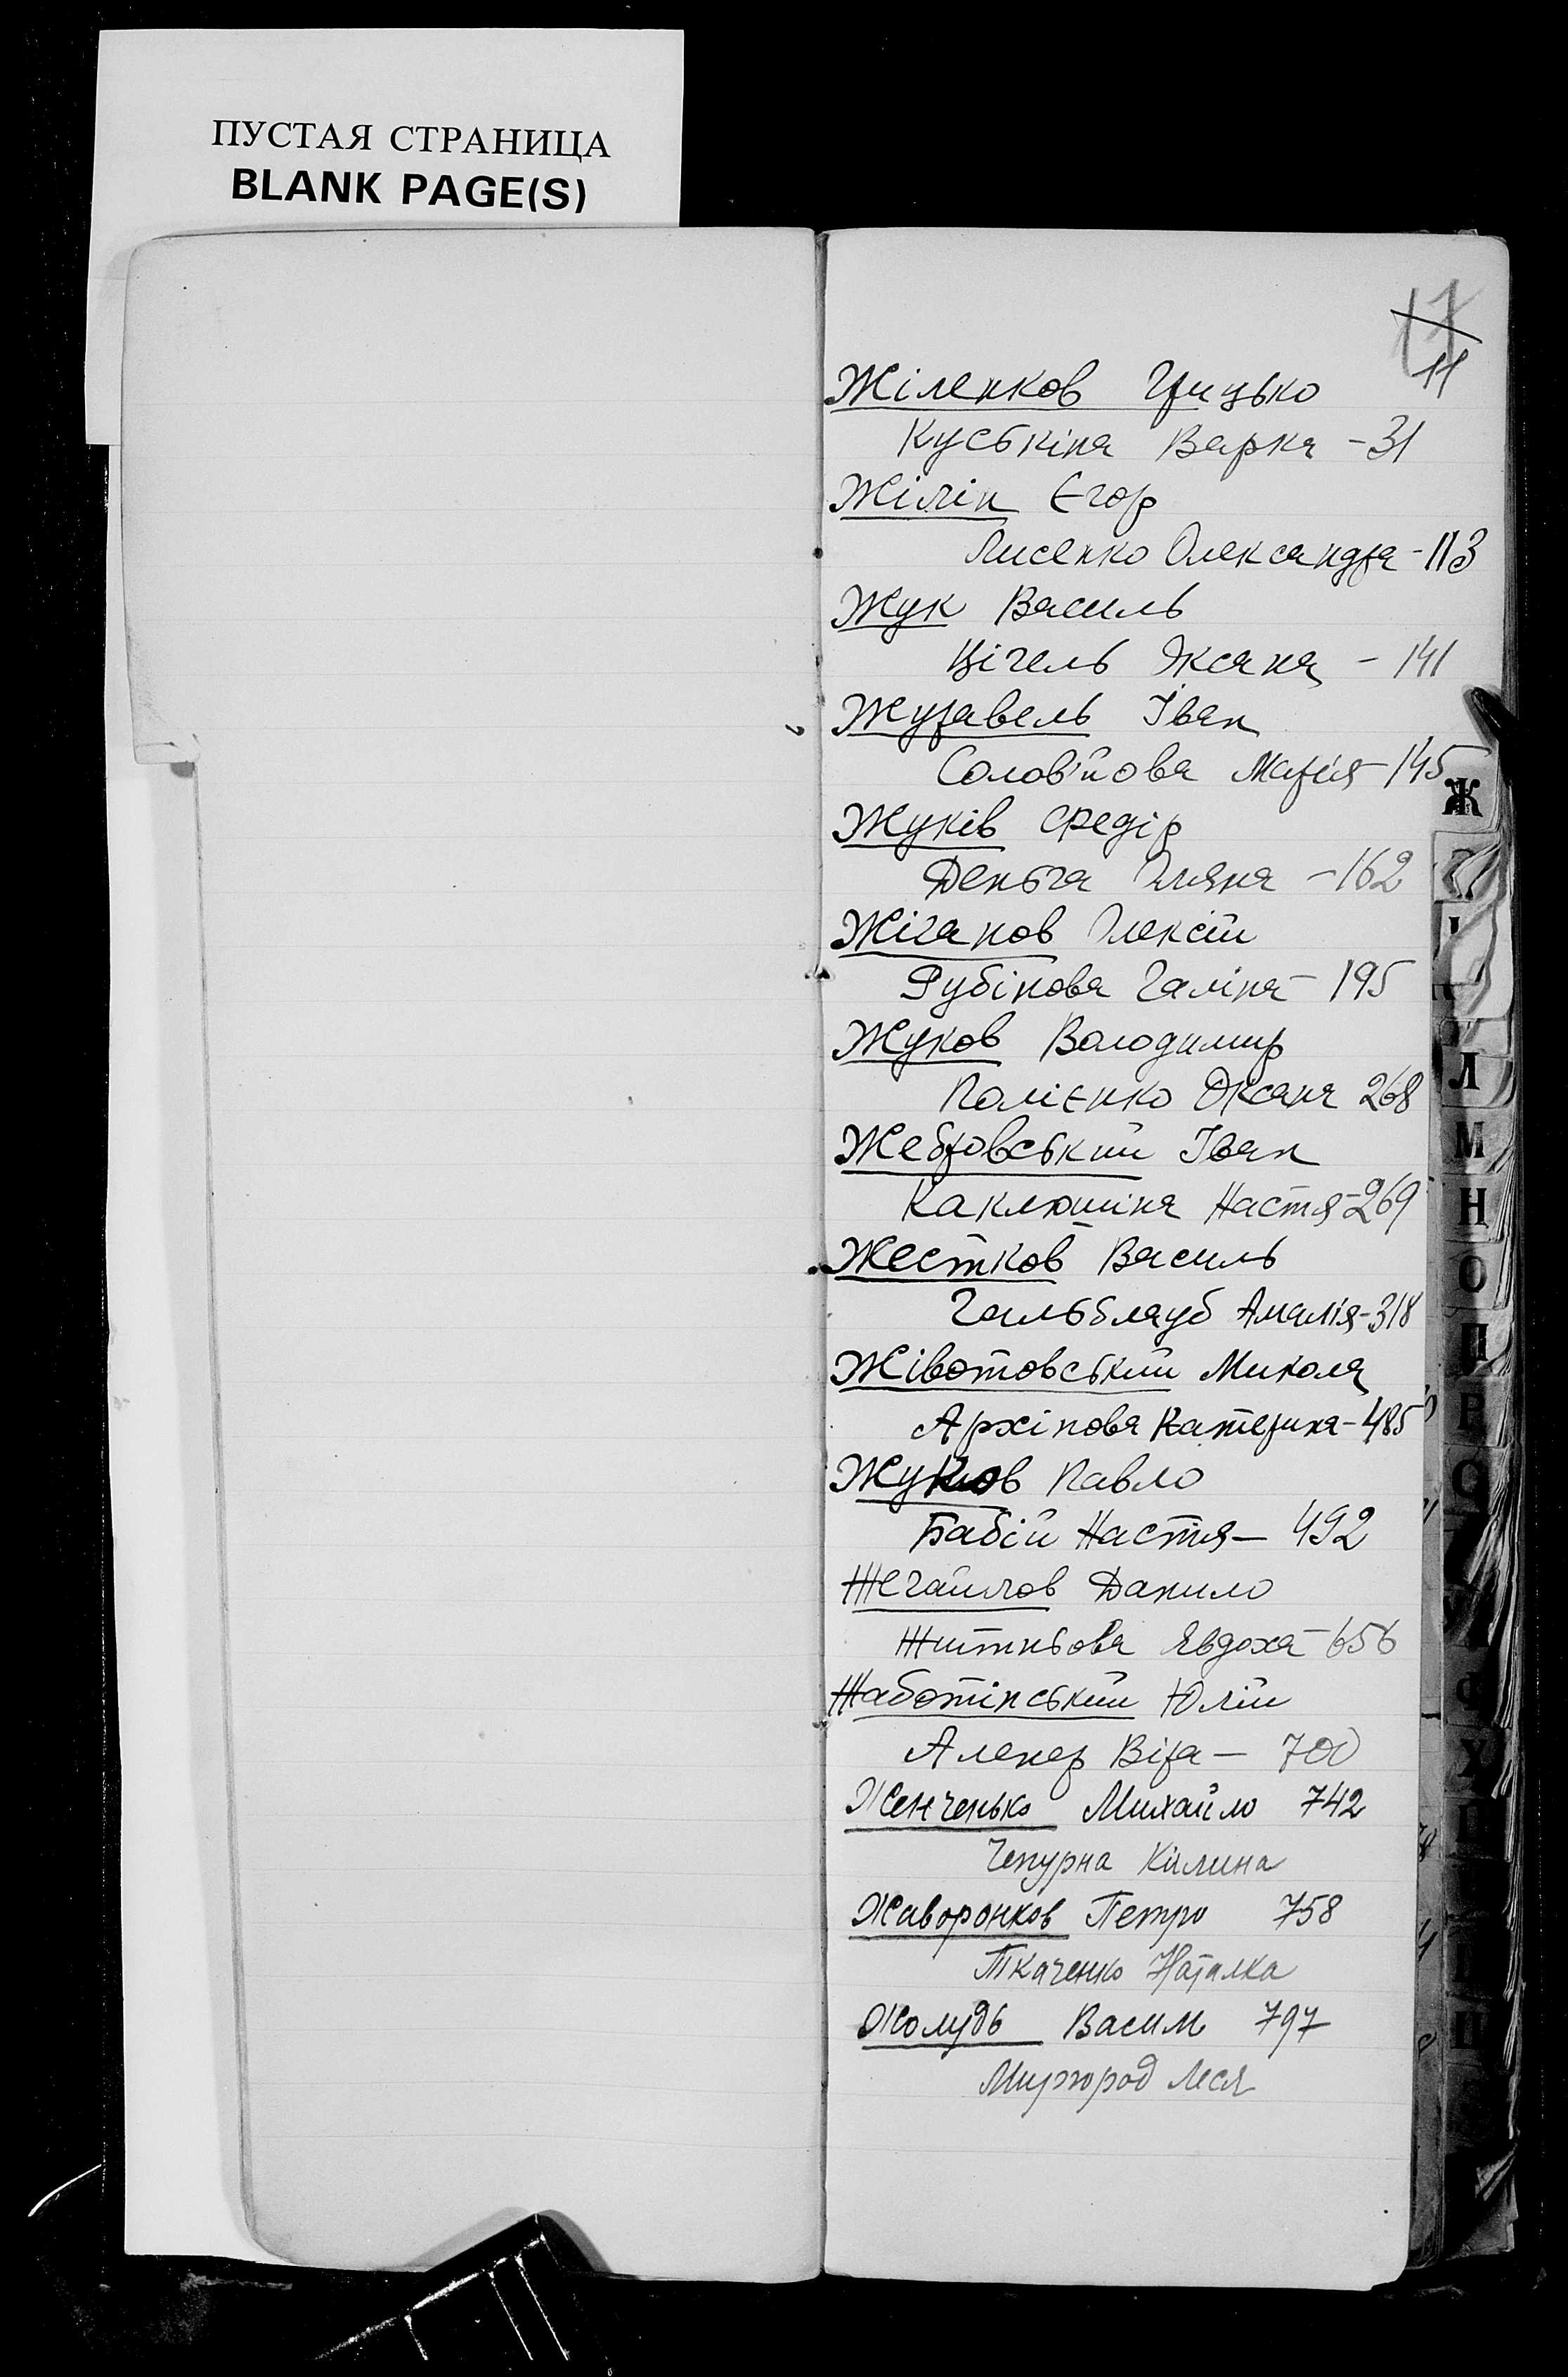 ПУСТАЯ СТРАНИЦА
BLANK PAGE(S)
17
11
Жіленков Грицько
Куськіна Варка - 31
Жілін Єгор
Лисенко Олександра - 113
Жук Василь
Цігель Оксана - 141
Журавель Іван
Солов'йова Марія - 145
Жуків Федір
Деньга Уляна - 162
Жіганов Олексій
Рубінова Галіна - 195
Жуков Володимир
Полієнко Оксана 268
Жебровський Іван
Каклюшіна Настя - 269
Жестков Василь
Гальблауб Амалія - 318
Жівотовський Микола
Архіпова Катерина - 485
Жуков Павло
Бабій Настя - 492
Жегайлов Данило
Житньова Явдоха - 656
Жаботінський Юлій
Аленер Віра - 700
Женченько Михайло 742
Чепурна Килина
Жаворонков Петро 758
Ткаченко Наталка
Жолудь Васил 797
Миргород Леся
Ж
Л
М
Н
О
П
Р
С
Х